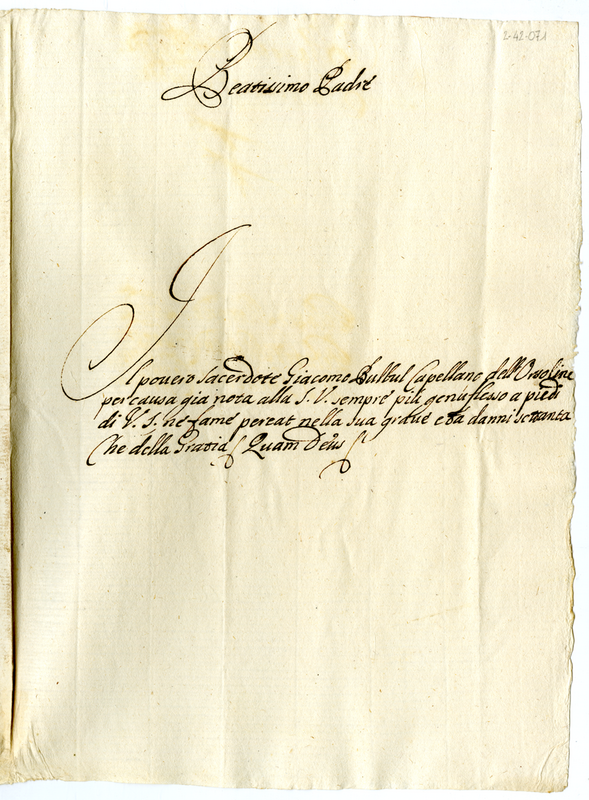 2-42-071
Beatissimo Padre
Il povero Sacerdote Giacomo Bulbul Capellano dell'Orsoline
per causa gia nota alla S. V. sempre più genuflesso a piedi
di V. S. ne fame pereat nella sua grave età danni settanta
Che della Gratia Quam Deus